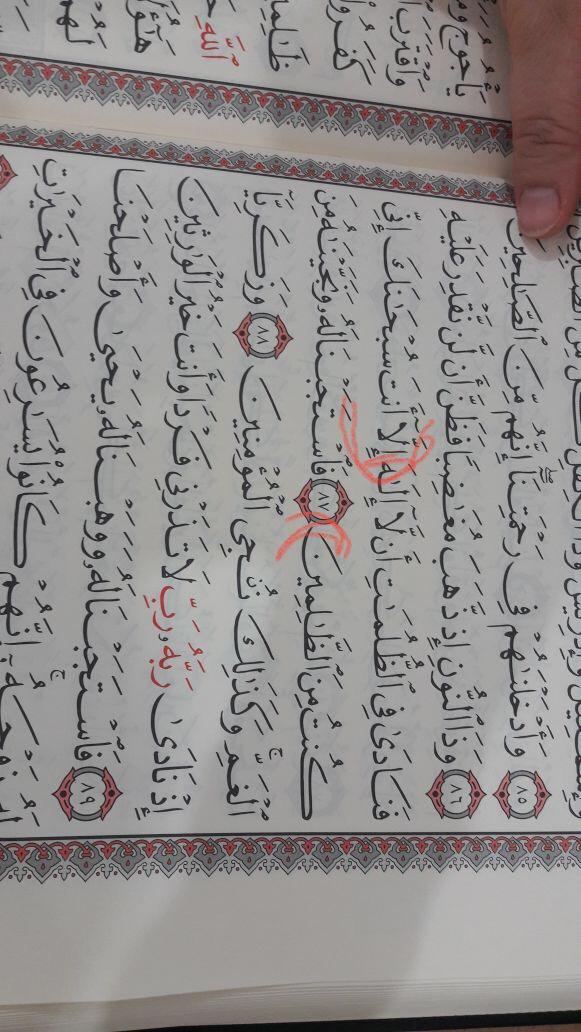 وَأَدْخَلْنَٰهُمْ فِى رَحْمَتِنَآ ۖ إِنَّهُم مِّنَ ٱلصَّٰلِحِينَ
٨٥
٨٦ وَذَا ٱلنُّونِ إِذ ذَّهَبَ مُغَٰضِبًا فَظَنَّ أَن لَّن نَّقْدِرَ عَلَيْهِ
فَنَادَىٰ فِى ٱلظُّلُمَٰتِ أَن لَّآ إِلَٰهَ إِلَّآ أَنتَ سُبْحَٰنَكَ إِنِّى
كُنتُ مِنَ ٱلظَّٰلِمِينَ ٨٧ فَٱسْتَجَبْنَا لَهُۥ وَنَجَّيْنَٰهُ مِنَ
ٱلْغَمِّ ۚ وَكَذَٰلِكَ نُۨجِى ٱلْمُؤْمِنِينَ ٨٨ وَزَكَرِيَّآ
إِذْ نَادَىٰ رَبَّهُۥ رَبِّ لَا تَذَرْنِى فَرْدًا وَأَنتَ خَيْرُ ٱلْوَٰرِثِينَ
٨٩ فَٱسْتَجَبْنَا لَهُۥ وَوَهَبْنَا لَهُۥ يَحْيَىٰ وَأَصْلَحْنَا
زَوْجَهُۥٓ ۚ إِنَّهُمْ كَانُوا۟ يُسَٰرِعُونَ فِى ٱلْخَيْرَٰتِ
يَأْجُوجُ
وَٱقْتَرَبَ
كَفَرُوا۟
ٱللَّهِ
لَهُمْ